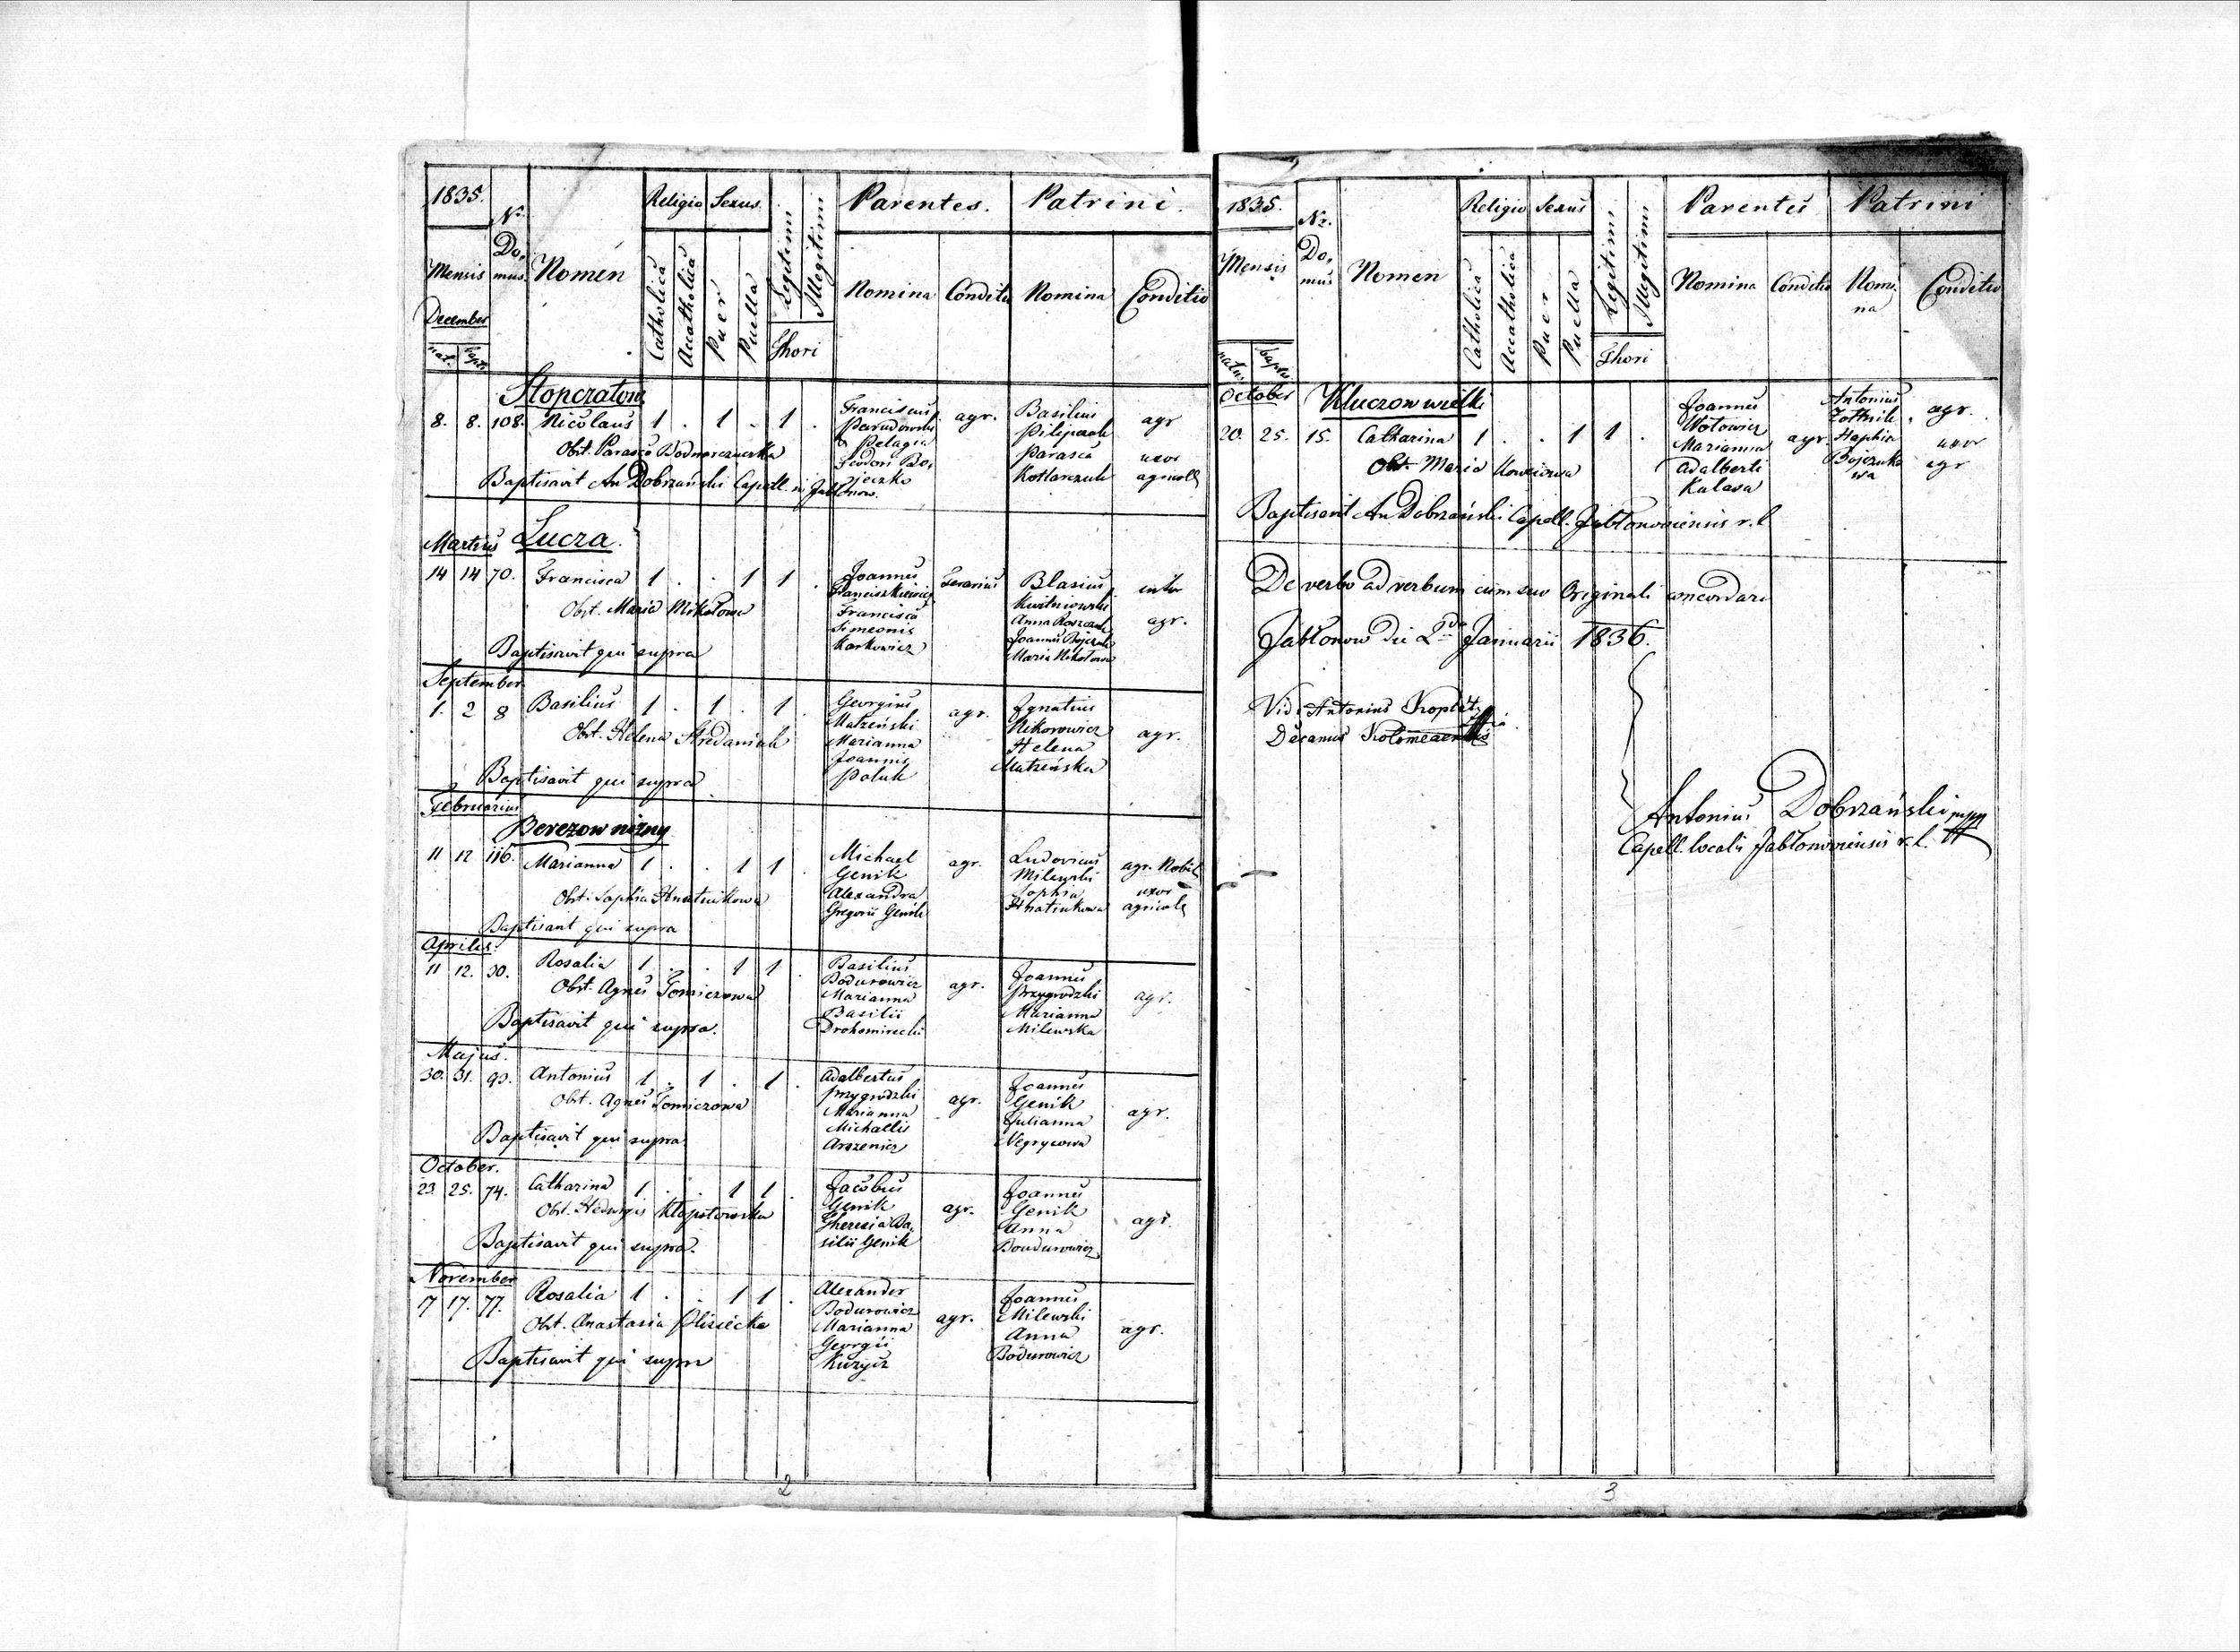 1835. Nr. Domus. Nomen Religio Sexus. Legitimi Illegitimi Parentes. Patrini.
Mensis Catholica Acatholica Puer Puella Thori Nomina Conditio Nomina Conditio
December
nat. bapt.
Stopczatow
8. 8. 108. Nicolaus 1 . 1 . 1 . Franciscus agr. Basilius agr
Pelagia
Parasca uxor
Kotlarczuk agricolae
Obst. Parasca Bodnarczucka
Baptisavit An Dobrzański Capell. in Jabłonow.
Martius Lucza.
14 14 70. Francisca 1 . . 1 1 . Joannes Blasius
Francisca
Simeonis
Karkowicz
Anna agr.
Joannis
Maria Mikołowa
Obst. Maria Mikołowa
Baptisavit qui supra
September
1. 2 8 Basilius 1 . 1 . 1 . Georgius agr. Ignatius agr.
Matzeński
Marianna
Joannis
Poluk
Nikorowicz
Helena
Matzeńska
Obst. Helena
Baptisavit qui supra
Februarius
Berezow nizny
11 12 116. Marianna 1 . . 1 1 . Michael agr. Ludovicus agr. Nobil
Genik
Alexandra
Gregorii Genik
Milewski
Sophia uxor
Hnatiukowa agricolae
Obst. Sophia Hnatiukowa
Baptisavit qui supra
Aprilis.
11 12. 30. Rosalia 1 . . 1 1 . Basilius agr. Joannes agr.
Bodurowicz
Marianna
Basilii
Drohomirecki
Przygrodzki
Marianna
Milewska
Obst. Agnes Tomiczowa
Baptisavit qui supra.
Majus.
30. 31. 93. Antonius 1 . 1 . 1 . Adalbertus agr. Joannes agr.
Przygrodzki
Marianna
Michaelis
Arszenicz
Genik
Julianna
Negrycowa
Obst. Agnes Tomiczowa
Baptisavit qui supra
October.
23. 25. 74. Catharina 1 . . 1 1 . Jacobus agr. Joannes agr.
Genik
Theresia Ba-
silii Genik
Genik
Anna
Boudurowicz
Obst. Hedwigis Kłopotowska
Baptisavit qui supra.
November
17 17. 77. Rosalia 1 . . 1 1 . Alexander agr. Joannes agr.
Bodurowicz
Marianna
Georgii
Kuzycz
Milewski
Anna
Bodurowicz
Obst. Anastasia Plisiecka
Baptisavit qui supra
2
1835. Nr. Domus Nomen Religio Sexus Legitimi Illegitimi Parentes Patrini
Mensis Catholica Acatholica Puer Puella Thori Nomina Conditio Nomina Conditio
natus bapt.
October Kluczow wielki
20. 25. 15. Catharina 1 . . 1 1 . Joannes agr. Antonius agr.
Wołowicz
Marianna
Adalberti
Kulasa
Haphia uxor
Bojczuko agr
wa
Obst. Maria
Baptisavit An Dobrzański Capell. Jabłonoviensis r. l.
De verbo ad verbum cum suo Originali concordare
Jabłonow die 2da Januarii 1836.
Vidi Antonius
Decanus Kolomeaensis
Antonius Dobrzański mpp
Capell. localis Jabłonoviensis r. l.
3